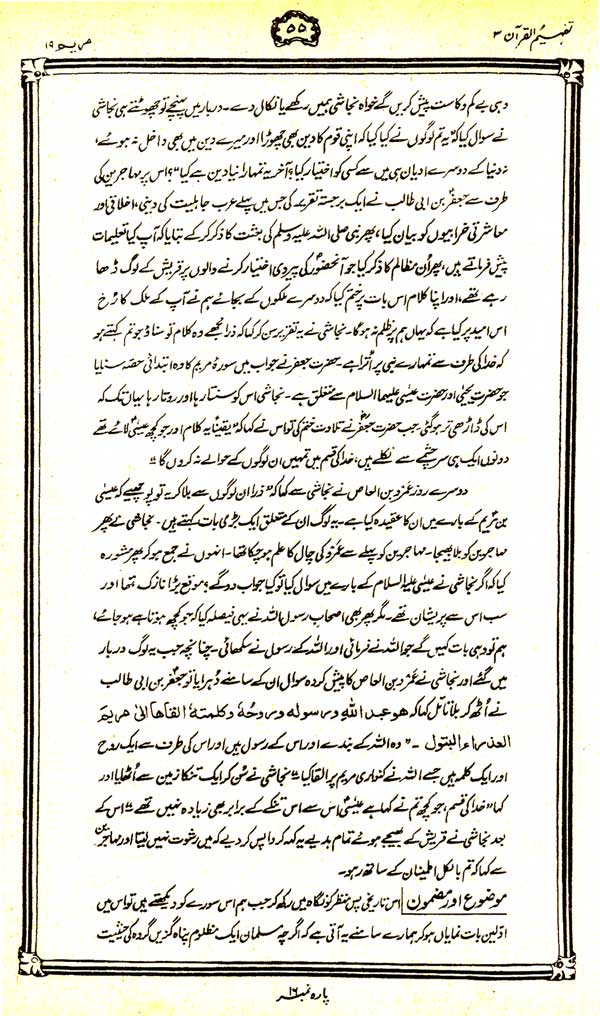 تفہیم القرآن ۳
۵۵
مریم ۱۹
وہی بے کم و کاست پیش کریں گے خواہ نجاشی ہمیں رکھے یا نکال دے۔ دربار میں پہنچے تو چھوٹتے ہی نجاشی
نے سوال کیا کہ ”یہ تم لوگوں نے کیا کیا کہ اپنی قوم کا دین بھی چھوڑا اور میرے دین میں بھی داخل نہ ہوئے،
نہ دنیا کے دوسرے ادیان ہی میں سے کسی کو اختیار کیا؟ آخر یہ تمہارا نیا دین ہے کیا“؟ اس پر مہاجرین کی
طرف سے جعفرؓ بن ابی طالب نے ایک برجستہ تقریر کی جس میں پہلے عرب جاہلیت کی دینی، اخلاقی اور
معاشرتی خرابیوں کو بیان کیا، پھر نبی صلی اللہ علیہ وسلم کی بعثت کا ذکر کر کے بتایا کہ آپ کیا تعلیمات
پیش فرماتے ہیں، پھر اُن مظالم کا ذکر کیا جو آنحضورؐ کی پیروی اختیار کرنے والوں پر قریش کے لوگ ڈھا
رہے تھے، اور اپنا کلام اس بات پر ختم کیا کہ دوسرے ملکوں کے بجائے ہم نے آپ کے ملک کا رُخ
اس امید پر کیا ہے کہ یہاں ہم پر ظلم نہ ہوگا۔ نجاشی نے یہ تقریر سن کر کہا کہ ذرا مجھے وہ کلام تو سناؤ جو تم کہتے ہو
کہ خدا کی طرف سے تمہارے نبی پر اُترا ہے۔ حضرت جعفر نے جواب میں سورۂ مریم کا وہ ابتدائی حصہ سنایا
جو حضرت یحییٰ اور حضرت عیسیٰ علیہما السلام سے متعلق ہے۔ نجاشی اس کو سنتا رہا اور روتا رہا یہاں تک کہ
اس کی ڈاڑھی تر ہوگئی۔ جب حضرت جعفرؓ نے تلاوت ختم کی تو اس نے کہا کہ ”یقیناً یہ کلام اور جو کچھ عیسیٰؑ لائے تھے
دونوں ایک ہی سرچشمے سے نکلے ہیں، خدا کی قسم میں تمہیں ان لوگوں کے حوالے نہ کروں گا“
دوسرے روز عَمرو بن العاص نے نجاشی سے کہا کہ ”ذرا ان لوگوں سے بلا کر یہ تو پوچھیے کہ عیسیٰ
بن مریم کے بارے میں ان کا عقیدہ کیا ہے۔ یہ لوگ ان کے متعلق ایک بڑی بات کہتے ہیں۔ نجاشی نے پھر
مہاجرین کو بلا بھیجا۔ مہاجرین کو پہلے سے عَمرو کی چال کا علم ہو چکا تھا۔ انہوں نے جمع ہو کر پھر مشورہ
کیا کہ اگر نجاشی نے عیسیٰ علیہ السلام کے بارے میں سوال کیا تو کیا جواب دو گے؟ موقع بڑا نازک تھا اور
سب اس سے پریشان تھے۔ مگر پھر بھی اصحاب رسول اللہ نے یہی فیصلہ کیا کہ جو کچھ ہونا ہے ہو جائے،
ہم تو وہی بات کہیں گے جو اللہ نے فرمائی اور اللہ کے رسول نے سکھائی۔ چنانچہ جب یہ لوگ دربار
میں گئے اور نجاشی نے عَمرو بن العاص کا پیش کردہ سوال ان کے سامنے دُہرایا تو جعفرؓ بن ابی طالب
نے اُٹھ کر بلا تأمل کہا کہ ھو عبد اللّٰہ و رسولہ و روحہ وکلمتہ القاھا الیٰ مریم
العذراء البتول ۔ ”وہ اللہ کے بندے اور اس کے رسول ہیں اور اس کی طرف سے ایک روح
اور ایک کلمہ ہیں جسے اللہ نے کنواری مریم پر القا کیا“ نجاشی نے سُن کر ایک تنکا زمین سے اُٹھایا اور
کہا ”خدا کی قسم، جو کچھ تم نے کہا ہے عیسیٰؑ اس سے اس تنکے کے برابر بھی زیادہ نہیں تھے“ اس کے
بعد نجاشی نے قریش کے بھیجے ہوئے تمام ہدیے یہ کہہ کر واپس کر دیے کہ میں رشوت نہیں لیتا اور مہاجرین
سے کہا کہ تم بالکل اطمینان کے ساتھ رہو۔
موضوع اور مضمون اس تاریخی پس منظر کو نگاہ میں رکھ کر جب ہم اس سورے کو دیکھتے ہیں تو اس میں
اوّلین بات نمایاں ہو کر ہمارے سامنے یہ آتی ہے کہ اگرچہ مسلمان ایک مظلوم پناہ گزیں گروہ کی حیثیت
پارہ نمبر ۱۶